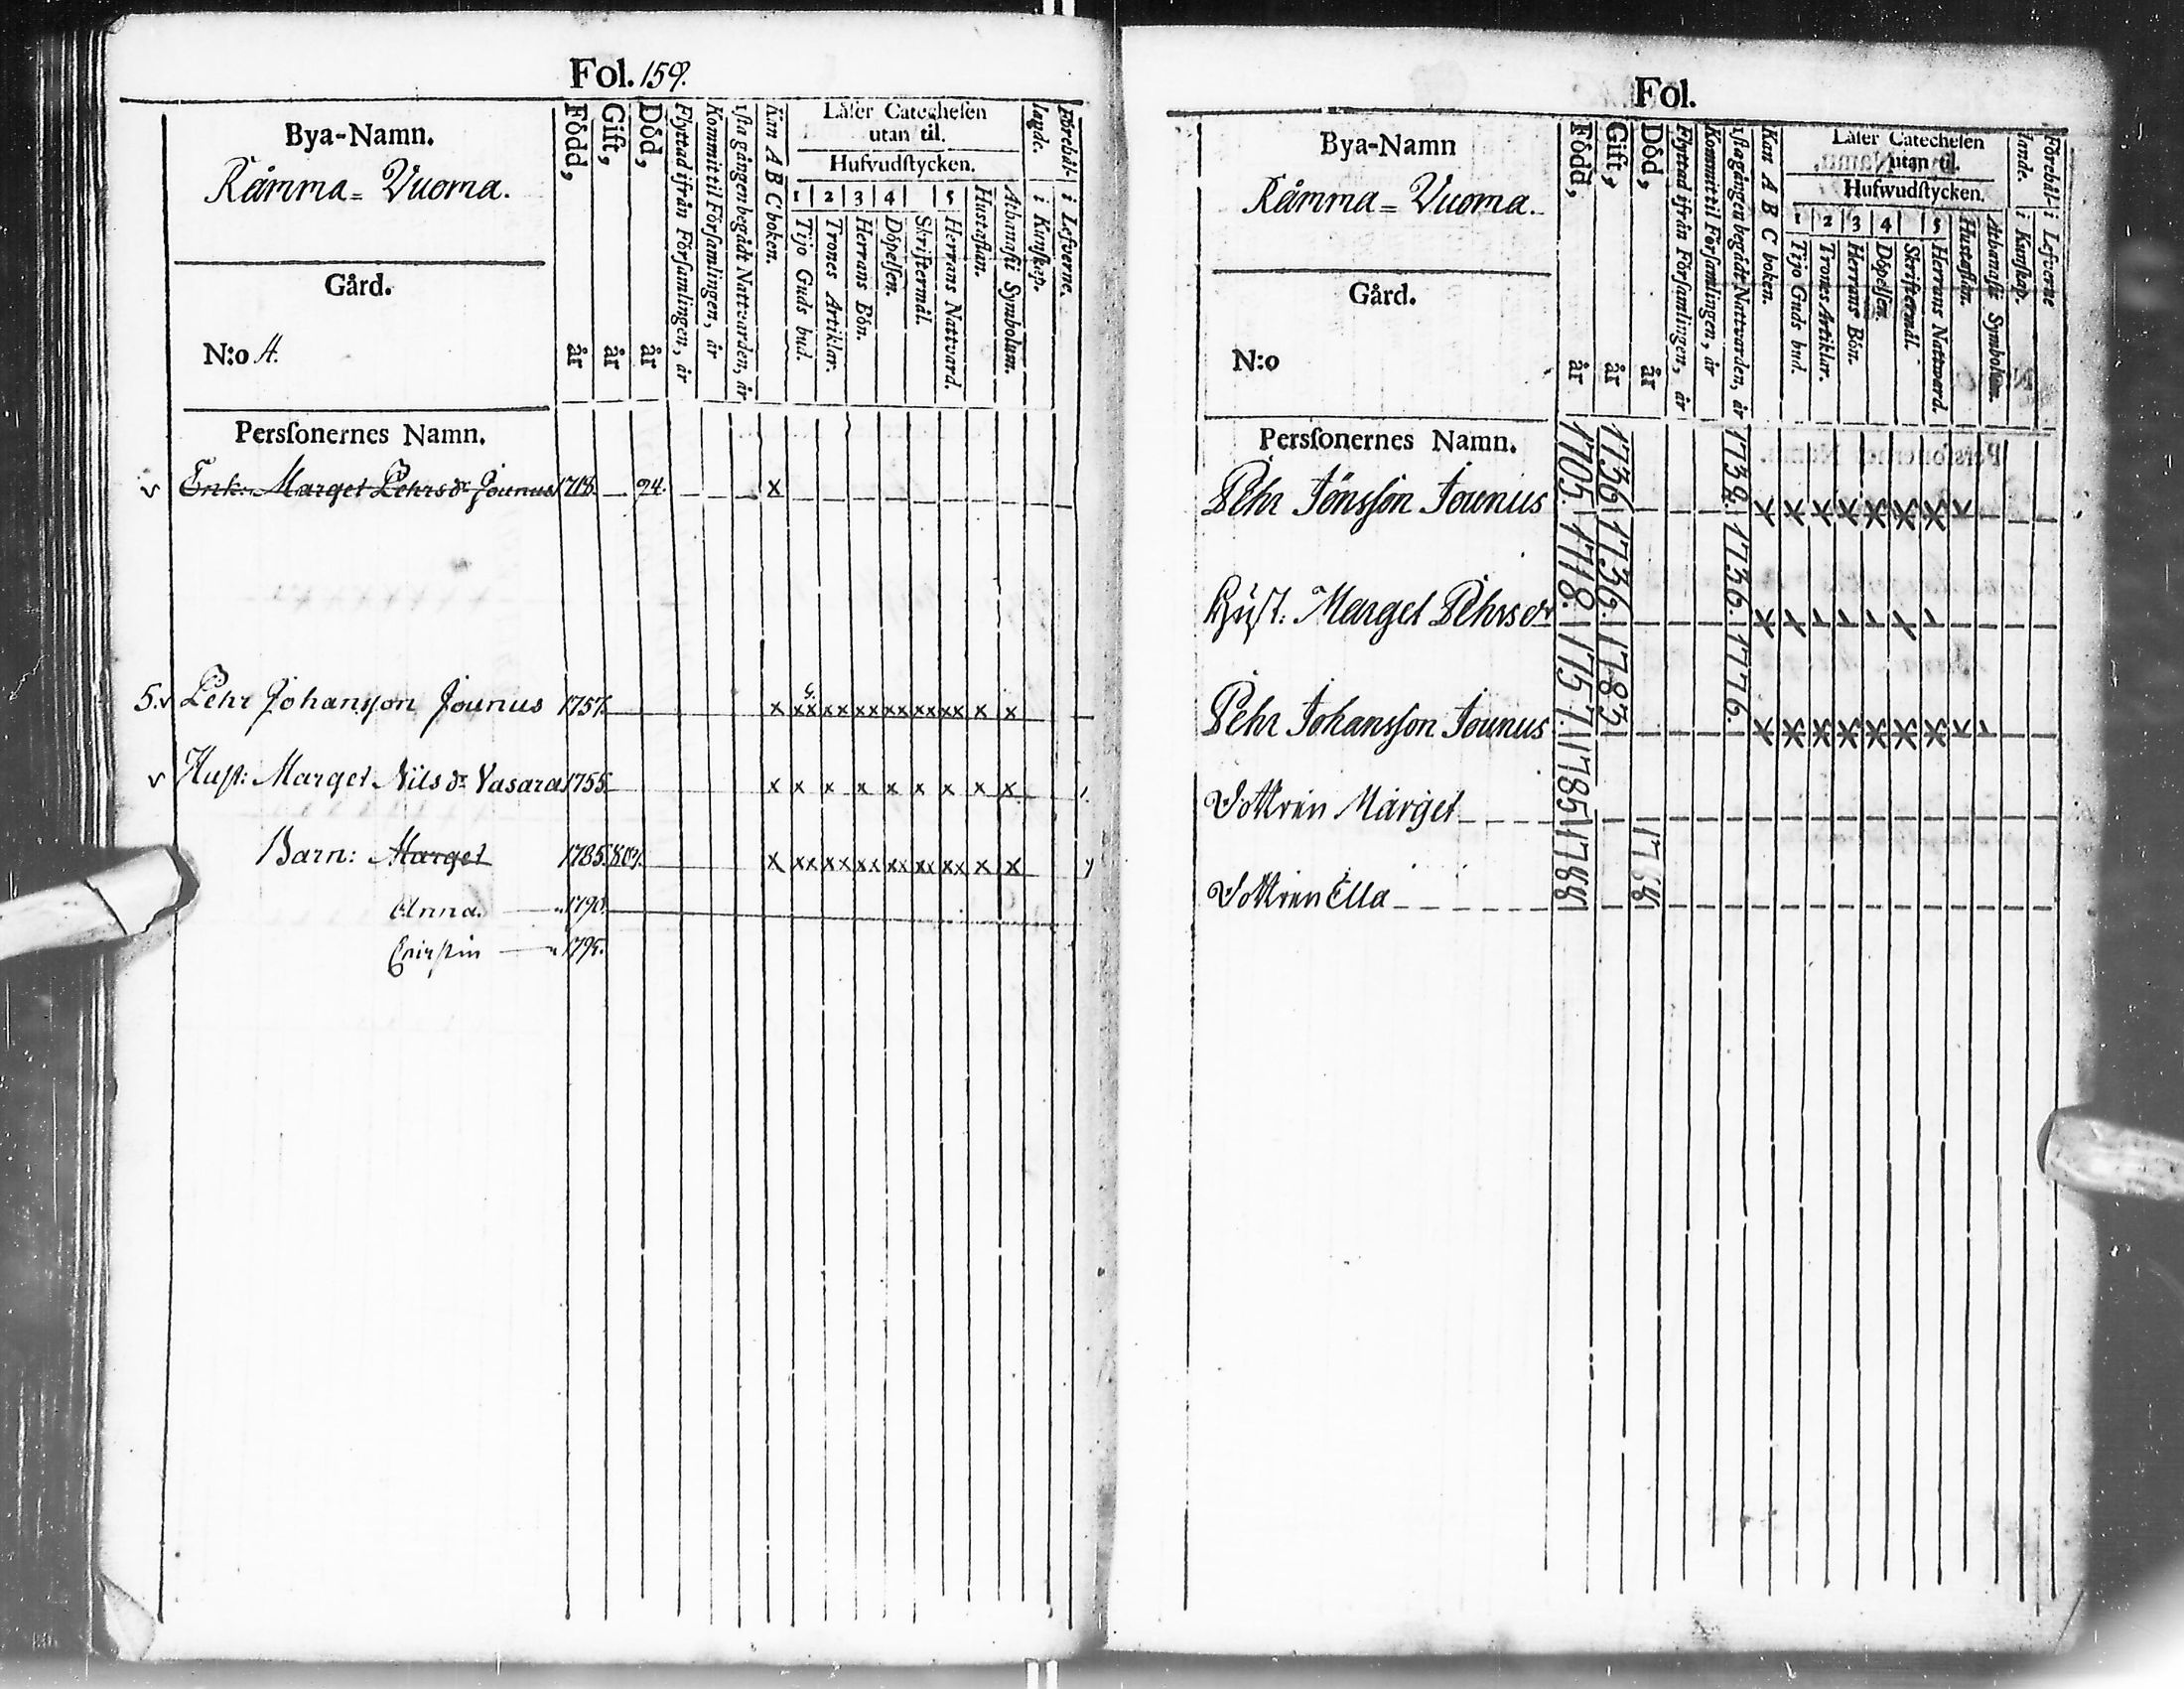 Fol. 159.
Bya-Namn.
Rämma= Vuoma.
Gård.
N:o 4.
Persſonernes Namn.
Född, år
Gift, år
Död, år
Flyttad ifrån Förſamlingen, år
Kommit til Förſamlingen, år
1ſta gången begådt Nattvarden, år
Kan A B C boken.
Läſer Catecheſen
utan til.
Hufvudſtycken.
1 2 3 4 5
Tijo Guds bud.
Trones Artiklar.
Herrans Bön.
Döpelſen.
Skriftermål.
Herrans Natvard.
Huſtaflan.
Athanaſii Symbolum.
Förebål-
lagde.
i Kunſkap.
i Lefverne.
v Enk. Marget Pehrsdr Jounus 1718. 94. x
5.v Pehr Johansson Jounus 1757. x xx xx xx xx xx xx x x
v Hust: Marget Nilsdr Vasara 1755 x x x x x x x x x
Barn: Marget 1785. 807. x xx xx xx xx xx xx x x
Anna. 1790.
Cairstin 1795.
Fol.
Bya-Namn
Råmma= Vuoma.
Gård.
N:o
Persſonernes Namn.
Född, år
Gift, år
Död, år
Flyttad ifrån Förſamlingen, år
Kommit til Förſamlingen, år
1ſta gången begådt Nattvarden, år
Kan A B C boken.
Läſer Catecheſen
utan til.
Hufwudſtycken.
1 2 3 4 5
Tijo Guds bud.
Trones Artiklar.
Herrans Bön.
Döpelſen.
Skriftermål.
Herrans Nattward.
Huſtaflan.
Athanaſii Symbolum.
Förebål-
lande.
i Kunſkap.
i Lefverne
Pehr Jönsson Jounus 1705. 1736
Hust. Marget Pehrsdr 1718. 1736. 1736.
Pehr Johansson Jounus 1757. 1783 1776.
Dottren Marget 1785
Dottren Ella 1788 1788